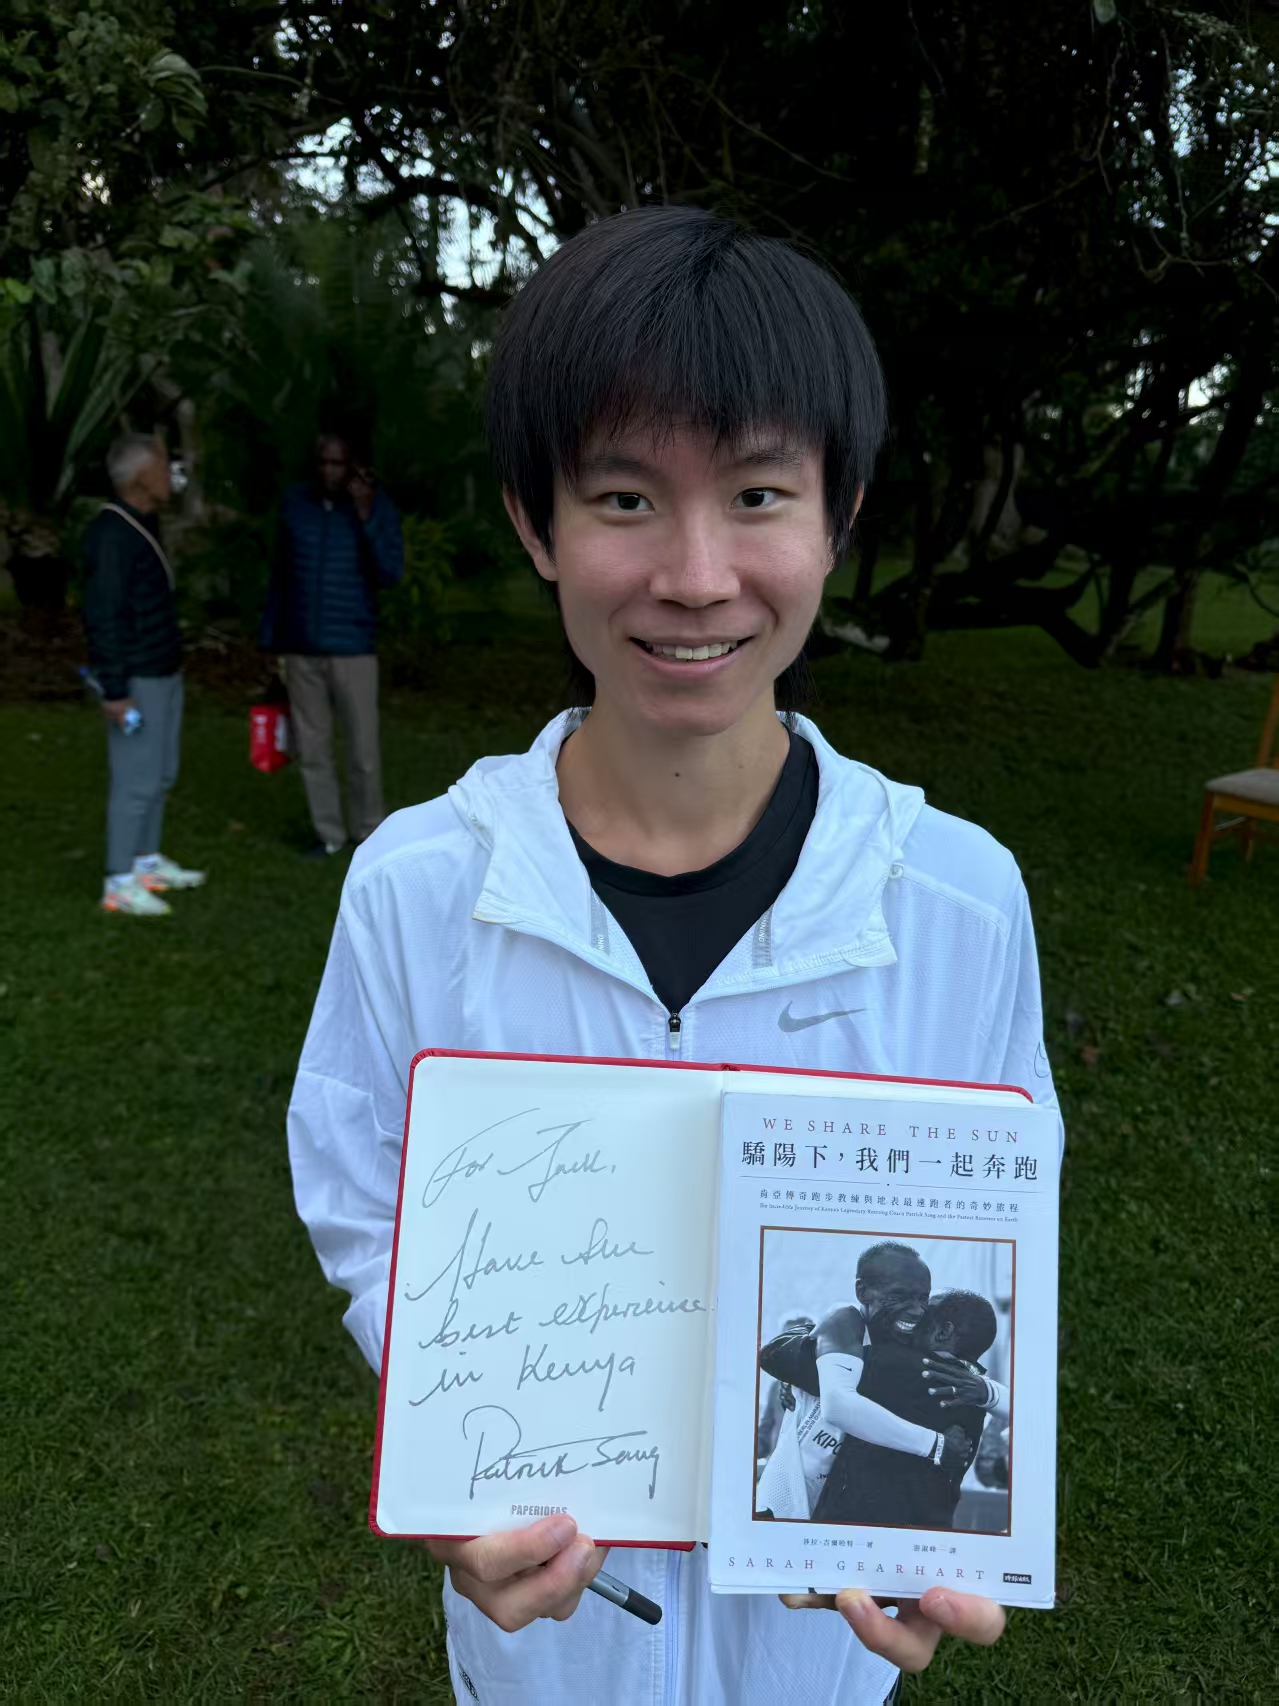 For Jack,
Have the
best experience
in Kenya
Patrick Sang
PAPERIDEAS
WE SHARE THE SUN
驕陽下，我們一起奔跑
肯亞傳奇跑步教練與地表最速跑者的奇妙旅程
The Incredible Journey of Kenya's Legendary Running Coach Patrick Sang and the Fastest Runners on Earth
KIPC
莎拉·吉爾哈特—著
SARAH GEARHART
時報出版